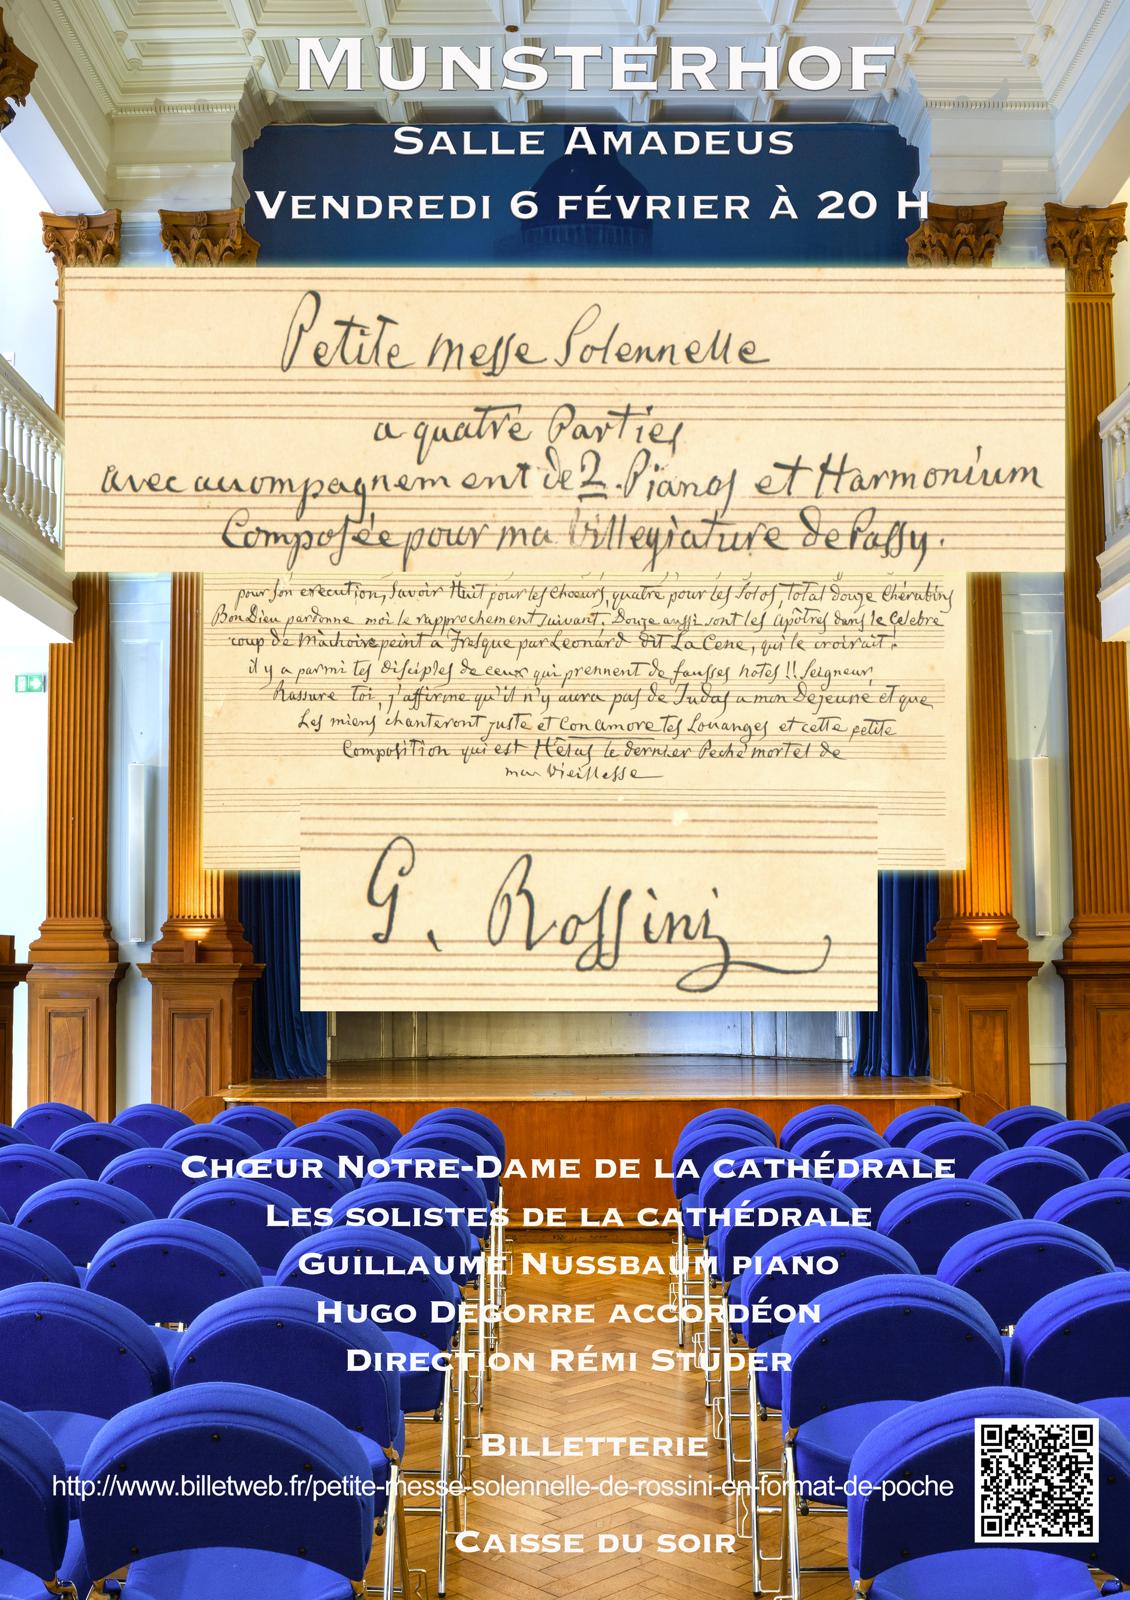 MUNSTERHOF
SALLE AMADEUS
VENDREDI 6 FÉVRIER À 20 H
Petite messe Solennelle
a quatre Parties
avec accompagnement de 2 Pianos et Harmonium
Composée pour ma villegiature de Passy.
pour son execution, Savoir Huit pour les choeurs, quatre pour les Solos, total douze Chérubins
Bon Dieu pardonne moi le rapprochement suivant. Douze aussi sont les Apôtres dans le Celebre
coup de Machoire peint a Fresque par Leonard dit La Cene, qui le croirait.
il y a parmi tes disciples de ceux qui prennent de fausses notes !! Seigneur,
Rassure toi, j'affirme qu'il n'y aura pas de Judas a mon Dejeuné et que
Les miens chanteront juste et Con amore tes Louanges et cette petite
Composition qui est Hélas le dernier Peché mortel de
ma vieillesse
G. Rossini
CHŒUR NOTRE-DAME DE LA CATHÉDRALE
LES SOLISTES DE LA CATHÉDRALE
GUILLAUME NUSSBAUM PIANO
HUGO DEGORRE ACCORDÉON
DIRECTION RÉMI STUDER
BILLETTERIE
http://www.billetweb.fr/petite-messe-solennelle-de-rossini-en-format-de-poche
CAISSE DU SOIR